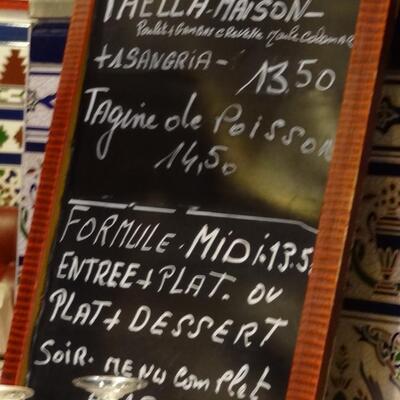 PAELLA.MAISON-
Poulet+Gambas crevette Moule Calamar
+1 SANGRIA- 13.50
TAgine de POISSON
14,50
FORMULE. MIDI.13.5
ENTREE+PLAT. OU
PLAT+ DESSERT
SOIR. MENU COMPLET